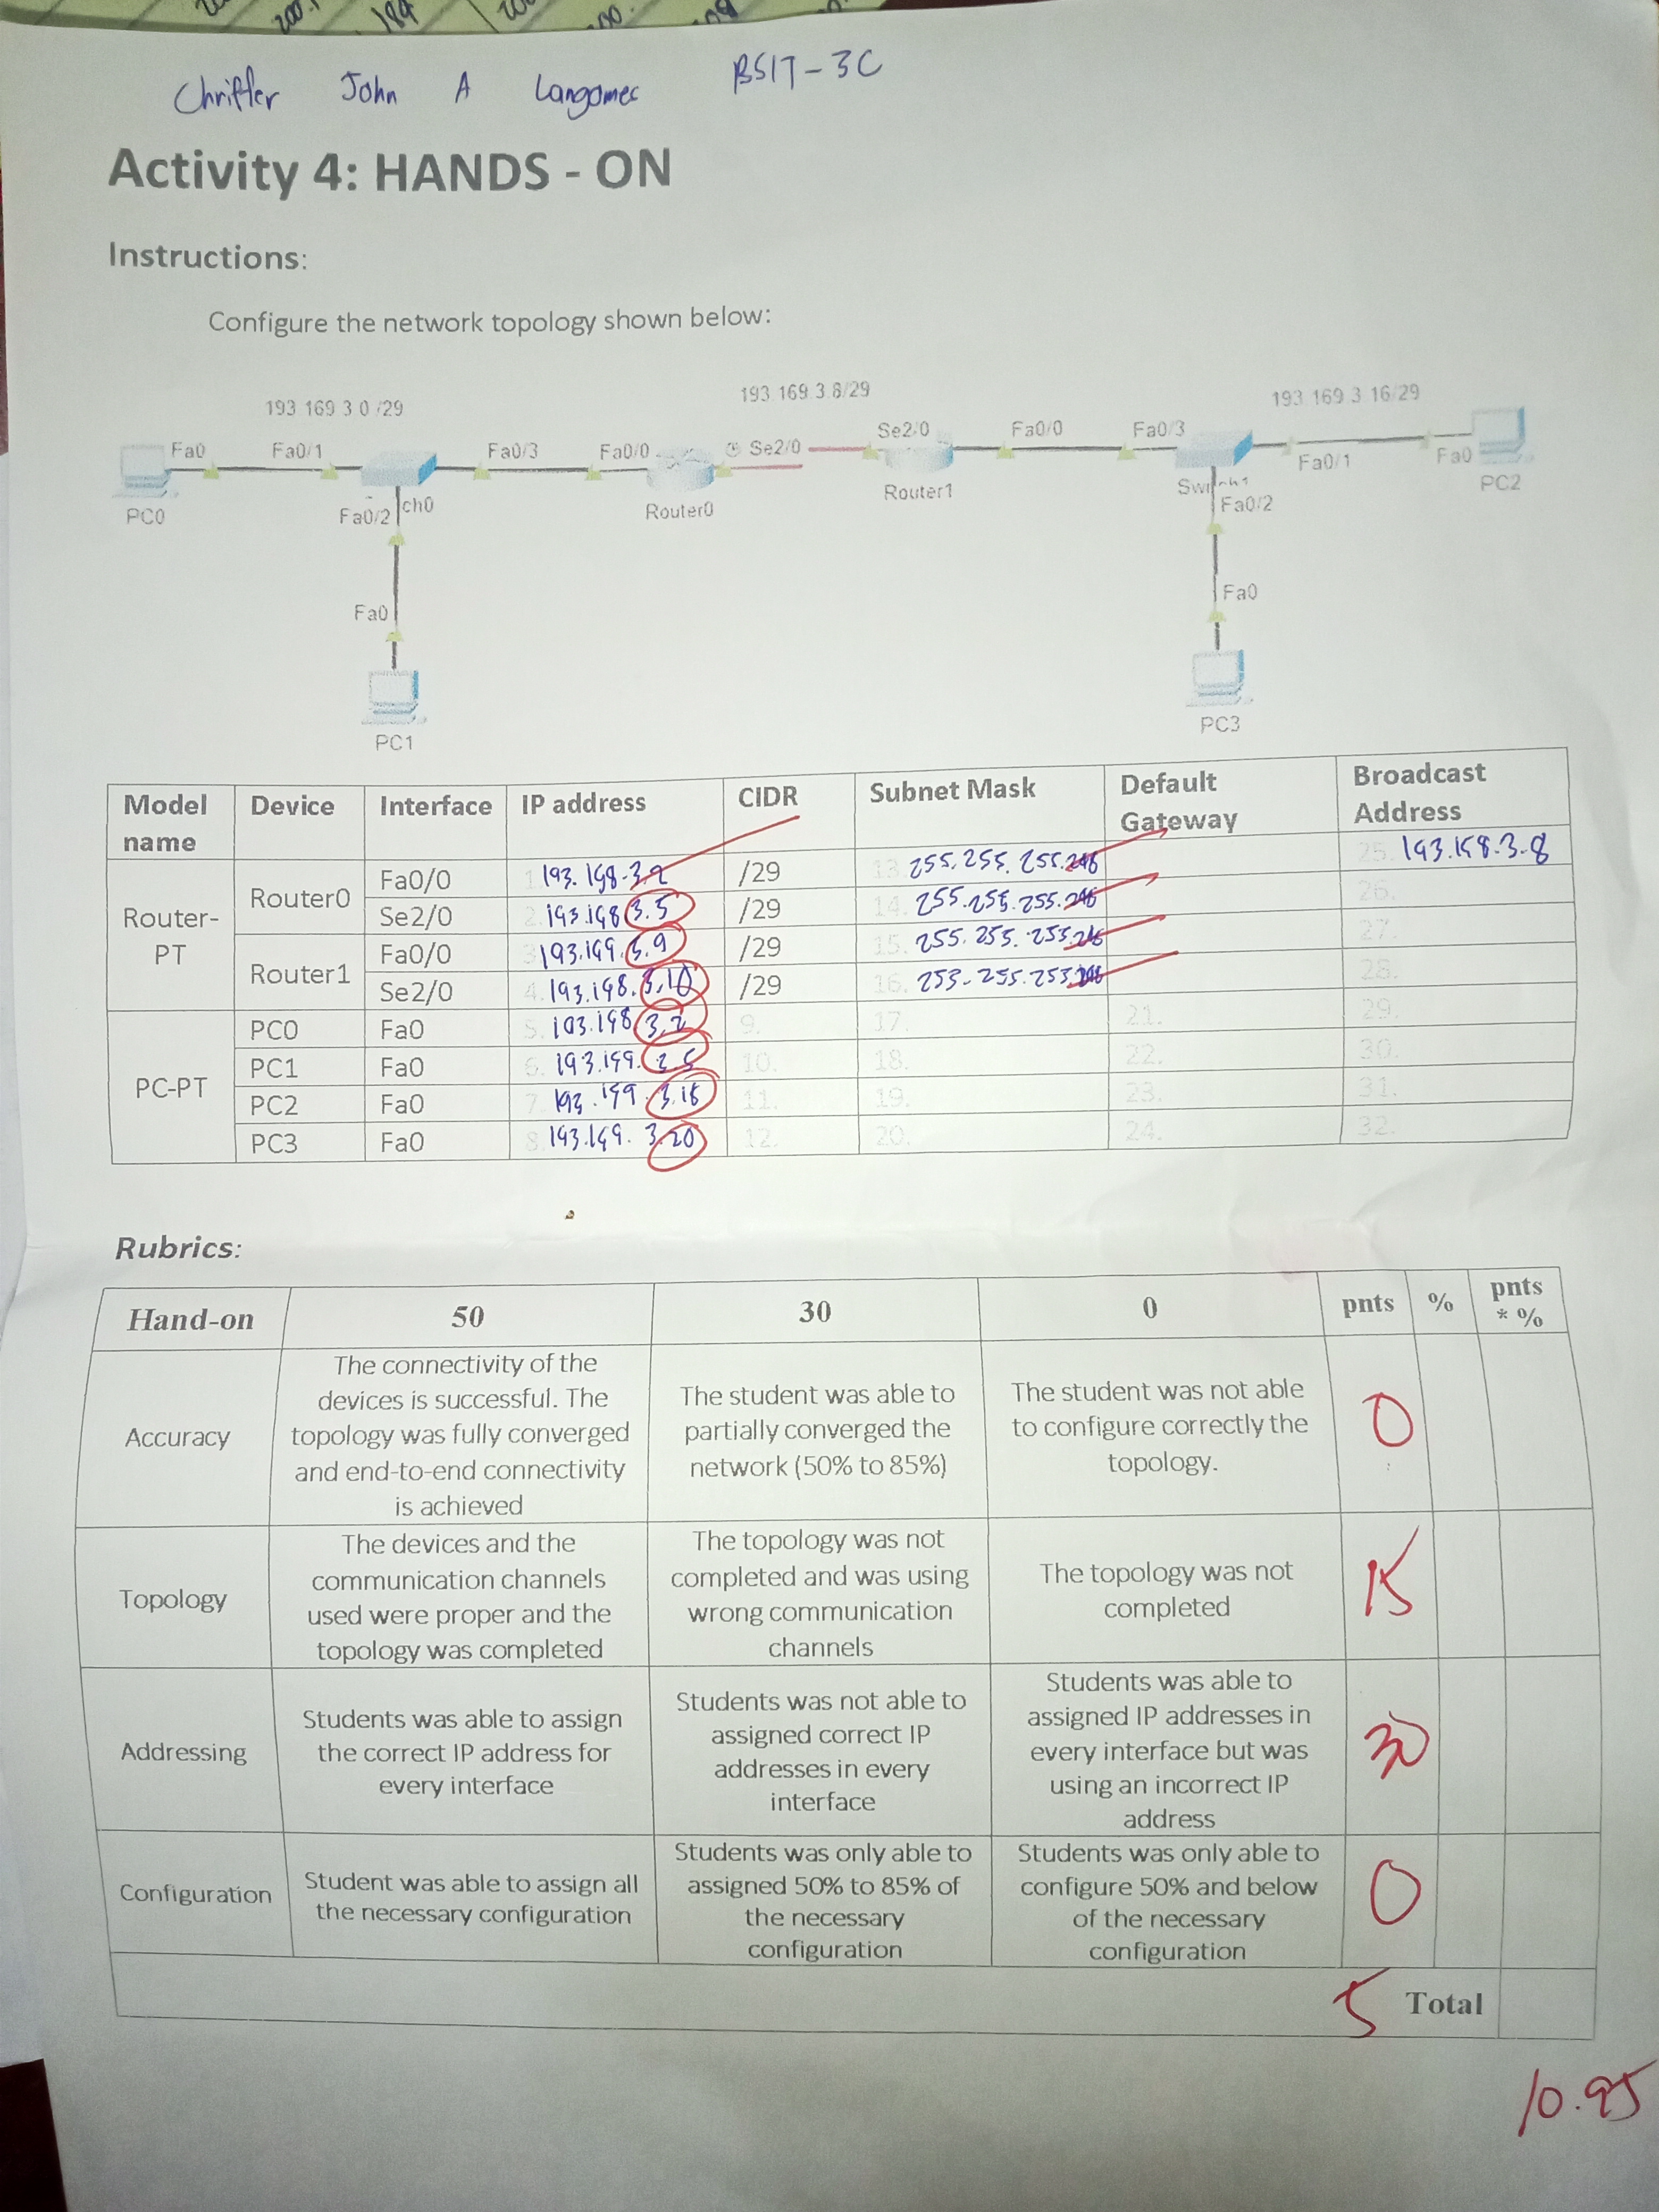 Chriftler John A Langomec BSIT-3C
Activity 4: HANDS - ON
Instructions:
Configure the network topology shown below:
193.169.3.0 /29 193.169.3.8/29 193.169.3.16/29
Fa0 Fa0/1 Fa0/3 Fa0/0 Se2/0 Se2/0 Fa0/0 Fa0/3 Fa0/1 Fa0
PC0 Fa0/2 ch0 Router0 Router1 Switch1 Fa0/2 PC2
Fa0 Fa0
PC1 PC3
Model name Device Interface IP address CIDR Subnet Mask Default Gateway Broadcast Address
Router-PT Router0 Fa0/0 1. 193.198.3.2 /29 13. 255.255.255.248 25. 193.158.3.8
Se2/0 2. 193.198 3.5 /29 14. 255.255.255.248 26.
Router1 Fa0/0 3. 193.169.3.9 /29 15. 255.255.255.248 27.
Se2/0 4. 193.198.3.10 /29 16. 253-255.253.248 28.
PC-PT PC0 Fa0 5. 103.198 3.2 9. 17. 21. 29.
PC1 Fa0 6. 193.199. 3.5 10. 18. 22. 30.
PC2 Fa0 7. 193.199.3.18 11. 19. 23. 31.
PC3 Fa0 8. 193.169. 3.20 12. 20. 24. 32.
Rubrics:
Hand-on 50 30 0 pnts % pnts * %
Accuracy
The connectivity of the
devices is successful. The
topology was fully converged
and end-to-end connectivity
is achieved
The student was able to
partially converged the
network (50% to 85%)
The student was not able
to configure correctly the
topology.
0
Topology
The devices and the
communication channels
used were proper and the
topology was completed
The topology was not
completed and was using
wrong communication
channels
The topology was not
completed
15
Addressing
Students was able to assign
the correct IP address for
every interface
Students was not able to
assigned correct IP
addresses in every
interface
Students was able to
assigned IP addresses in
every interface but was
using an incorrect IP
address
30
Configuration
Student was able to assign all
the necessary configuration
Students was only able to
assigned 50% to 85% of
the necessary
configuration
Students was only able to
configure 50% and below
of the necessary
configuration
0
5 Total
10.95